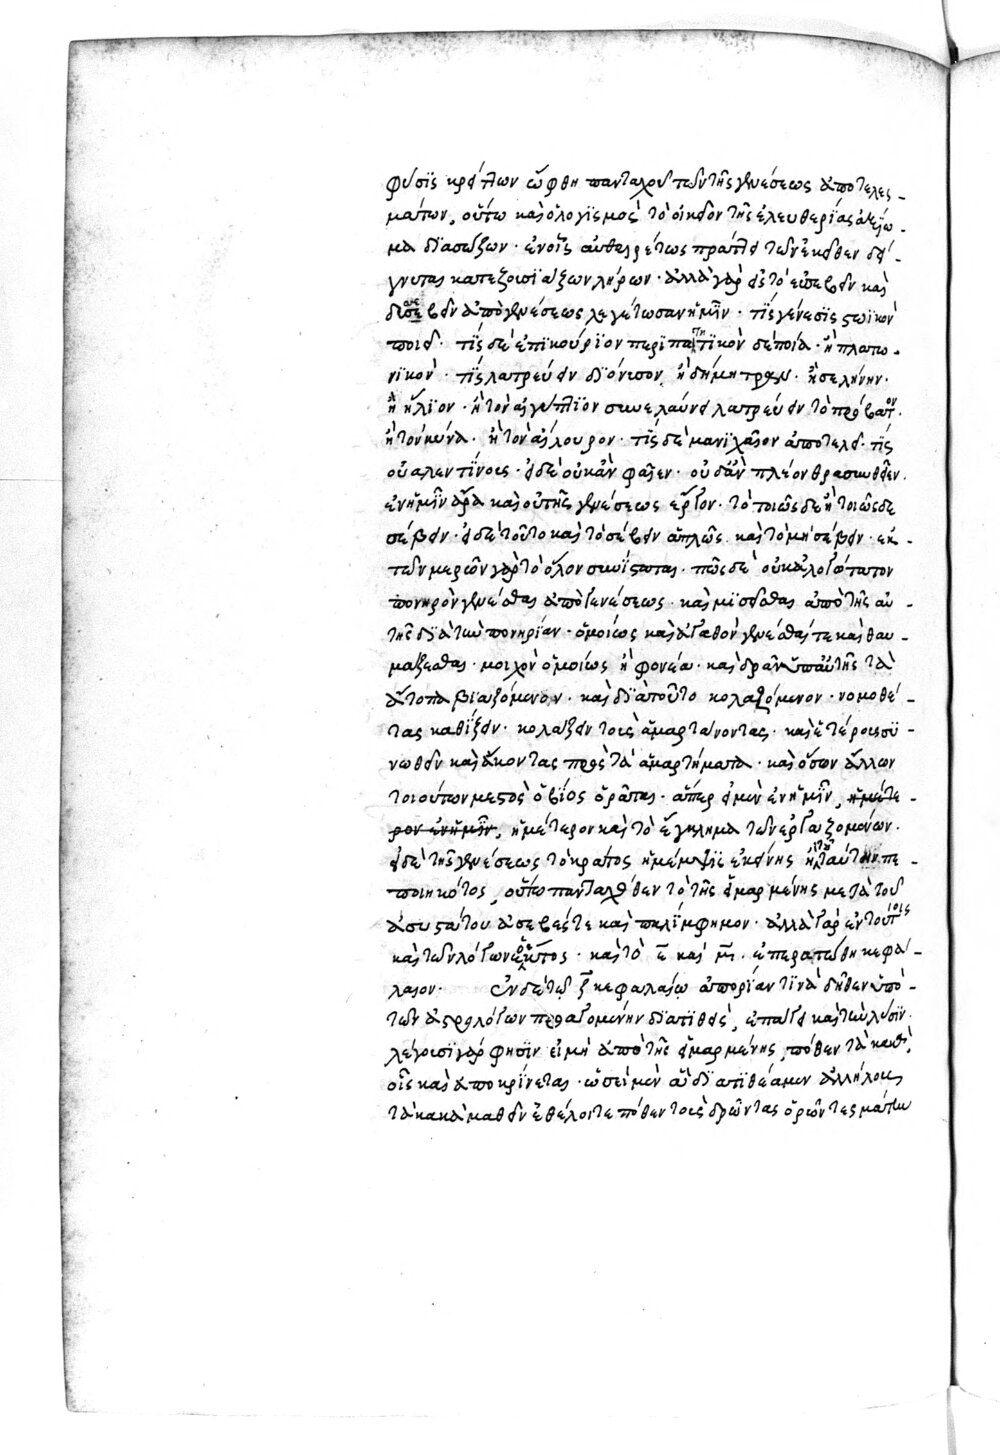 φύσις κρείττων ὤφθη πανταχοῦ τῶν τῆς γενέσεως ἀποτελεσ-
μάτων, οὕτω καὶ ὁ λογισμὸς τὸ οἰκεῖον τῆς ἐλευθερίας ἀξίω-
μα διασώζων· ἐν οἷς αὐθαιρέτως πράττει τῶν ἐκεῖθεν
κατεξουσιάζων λήρων· ἀλλὰ γὰρ εἰ τὸ εὐσεβεῖν καὶ
δυσσεβεῖν ἀπὸ γενέσεως λεγέτωσαν ἡμῖν· τίς γένεσις στωικὸν
ποιεῖ· τίς δὲ ἐπικούριον περιπατητικὸν δὲ ποία· ἢ πλατω-
νικόν· τίς λατρεύειν διόνυσον, ἢ δήμητραν· ἢ σελήνην·
ἢ ἥλιον· ἢ τὸν αἰγύπτιον συνελαύνει λατρεύειν τὸ πρόβατον·
ἢ τὸν κύνα· ἢ τὸν αἴλουρον· τίς δὲ μανιχαῖον ἀποτελεῖ· τίς
οὐαλεντίνους· εἰ δὲ οὐκ ἂν φαῖεν· οὐδ' ἂν πλέον θρασυνθεῖεν·
ἐν ἡμῖν ἄρα καὶ οὐ τῆς γενέσεως ἔργον· τὸ τοιῶσδε ἢ τοιῶσδε
σέβειν· εἰ δὲ τοῦτο καὶ τὸ σέβειν ἁπλῶς· καὶ τὸ μὴ σέβειν· ἐκ
τῶν μερῶν γὰρ τὸ ὅλον συνίσταται· πῶς δὲ οὐκ ἀλογώτατον
πονηρὸν γενέσθαι ἀπὸ γενέσεως· καὶ μισεῖσθαι ἀπὸ τῆς αὐ-
τῆς διὰ τὴν πονηρίαν· ὁμοίως καὶ ἀγαθὸν γενέσθαι τε καὶ θαυ-
μάζεσθαι· μοιχὸν ὁμοίως ἢ φονέα· καὶ δρᾶν ὑπ' αὐτῆς τὰ
ἄτοπα βιαζόμενον· καὶ διὰ τοῦτο κολαζόμενον· νομοθέ-
τας καθίζειν· κολάζειν τοὺς ἁμαρτάνοντας· καὶ ἑτέρους συ-
νωθεῖν καὶ ἄκοντας πρὸς τὰ ἁμαρτήματα· καὶ ὅσων ἄλλων
τοιούτων μεστὸς ὁ βίος ὁρᾶται· ἅπερ εἰ μὲν ἐν ἡμῖν, ἡμέτε-
ρον ἐν ἡμῖν, ἡμέτερον καὶ τὸ ἔγκλημα τῶν ἐργαζομένων·
εἰ δὲ τῆς γενέσεως τὸ κράτος ἡ μέμψις ἐκείνης ἢ τοῦ ταύτην πε-
ποιηκότος, οὕτω πανταχόθεν τὸ τῆς εἱμαρμένης μετὰ τοῦ
ἀσυστάτου ἀσεβές τε καὶ παλίμφημον· ἀλλὰ γὰρ ἐν τούτοις
καὶ τῶν λόγων ὁ ἕκτος· καὶ τὸ ε καὶ μ· ἐπερατώθη κεφά-
λαιον· Ἐν δὲ τῷ ζ κεφαλαίῳ ἀπορίαν τινὰ δῆθεν ὑπὸ
τῶν ἀστρολόγων προαγομένην διατιθεὶς, ἐπάγει καὶ τὴν λύσιν·
λέγουσι γάρ φησιν εἰ μὴ ἀπὸ τῆς εἱμαρμένης, πόθεν τὰ κακά,
οἷς καὶ ἀποκρίνεται· ὡς εἰ μὲν ἃ διατιθέαμεν ἀλλήλους
τὰ κακὰ μαθεῖν ἐθέλοιτε πόθεν τοὺς δρῶντας ὁρῶντες μάτην